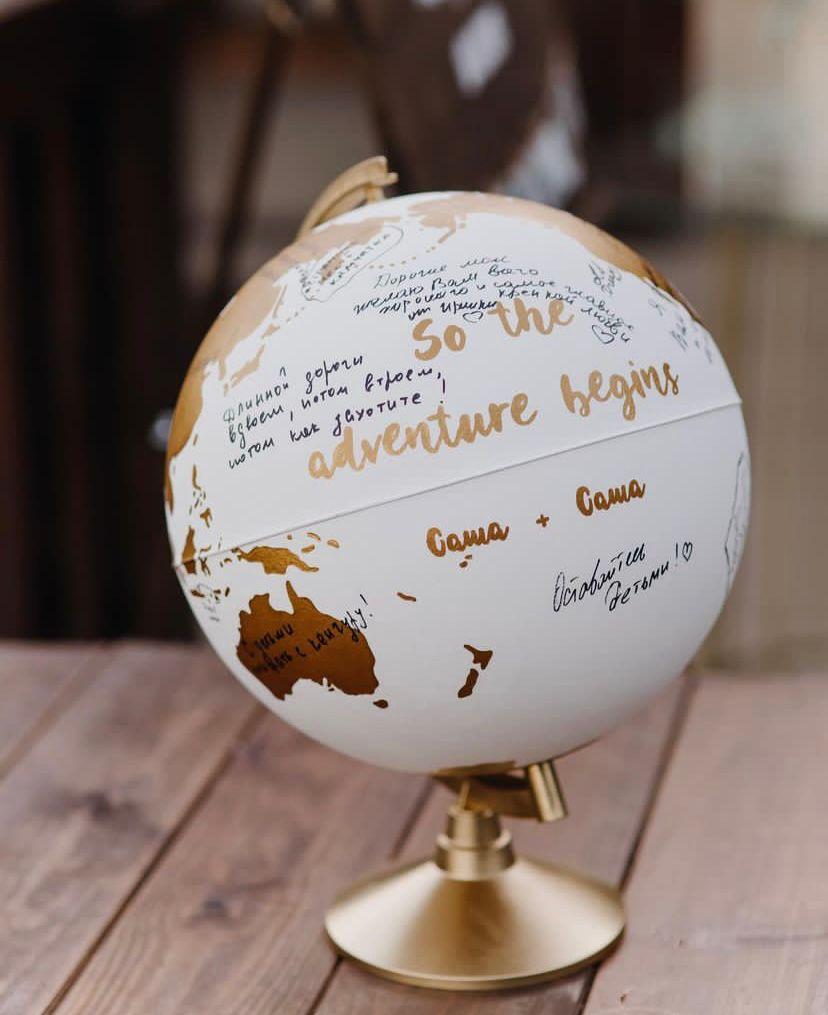 КАМЧАТКА
Дорогие мои
желаю Вам всего
хорошего и самое главное
от Иришки крепкой любви
So the
Длинной дороги
вдвоем, потом втроем,
потом как захотите!
adventure begins
Саша + Саша
Оставайтесь
детьми!
с кенгуру!